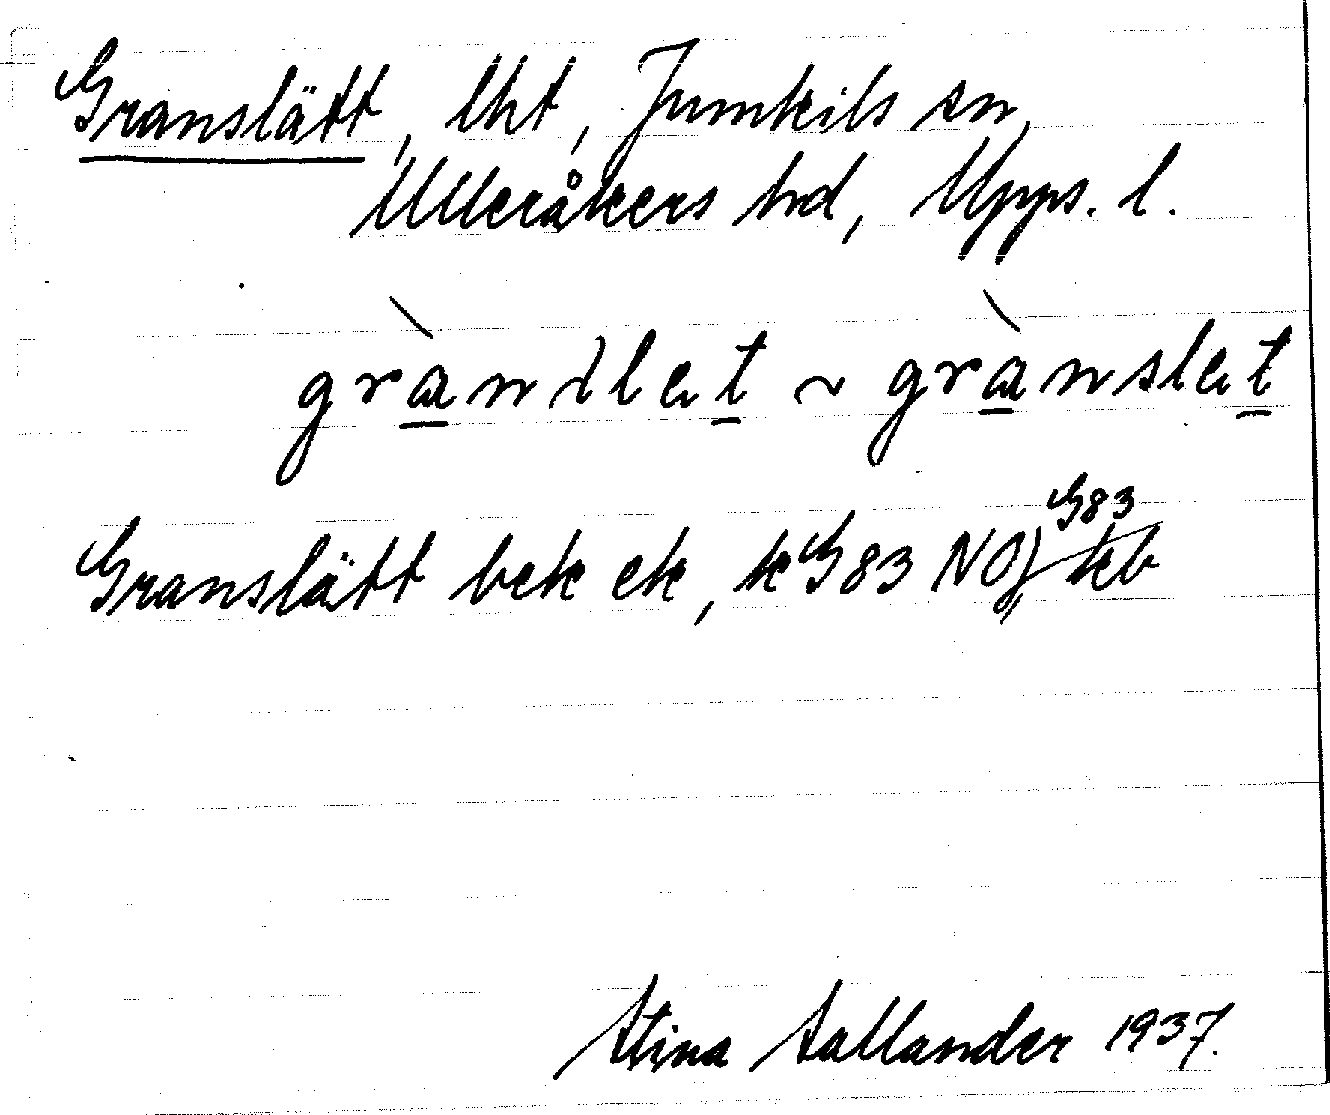 Granslätt, lht, Jumkils sn,
Ulleråkers hd, Upps. l.
grànslet ~ grànslet
Granslätt bek ek, k G83 NO, G83
kb
Stina Sallander 1937.